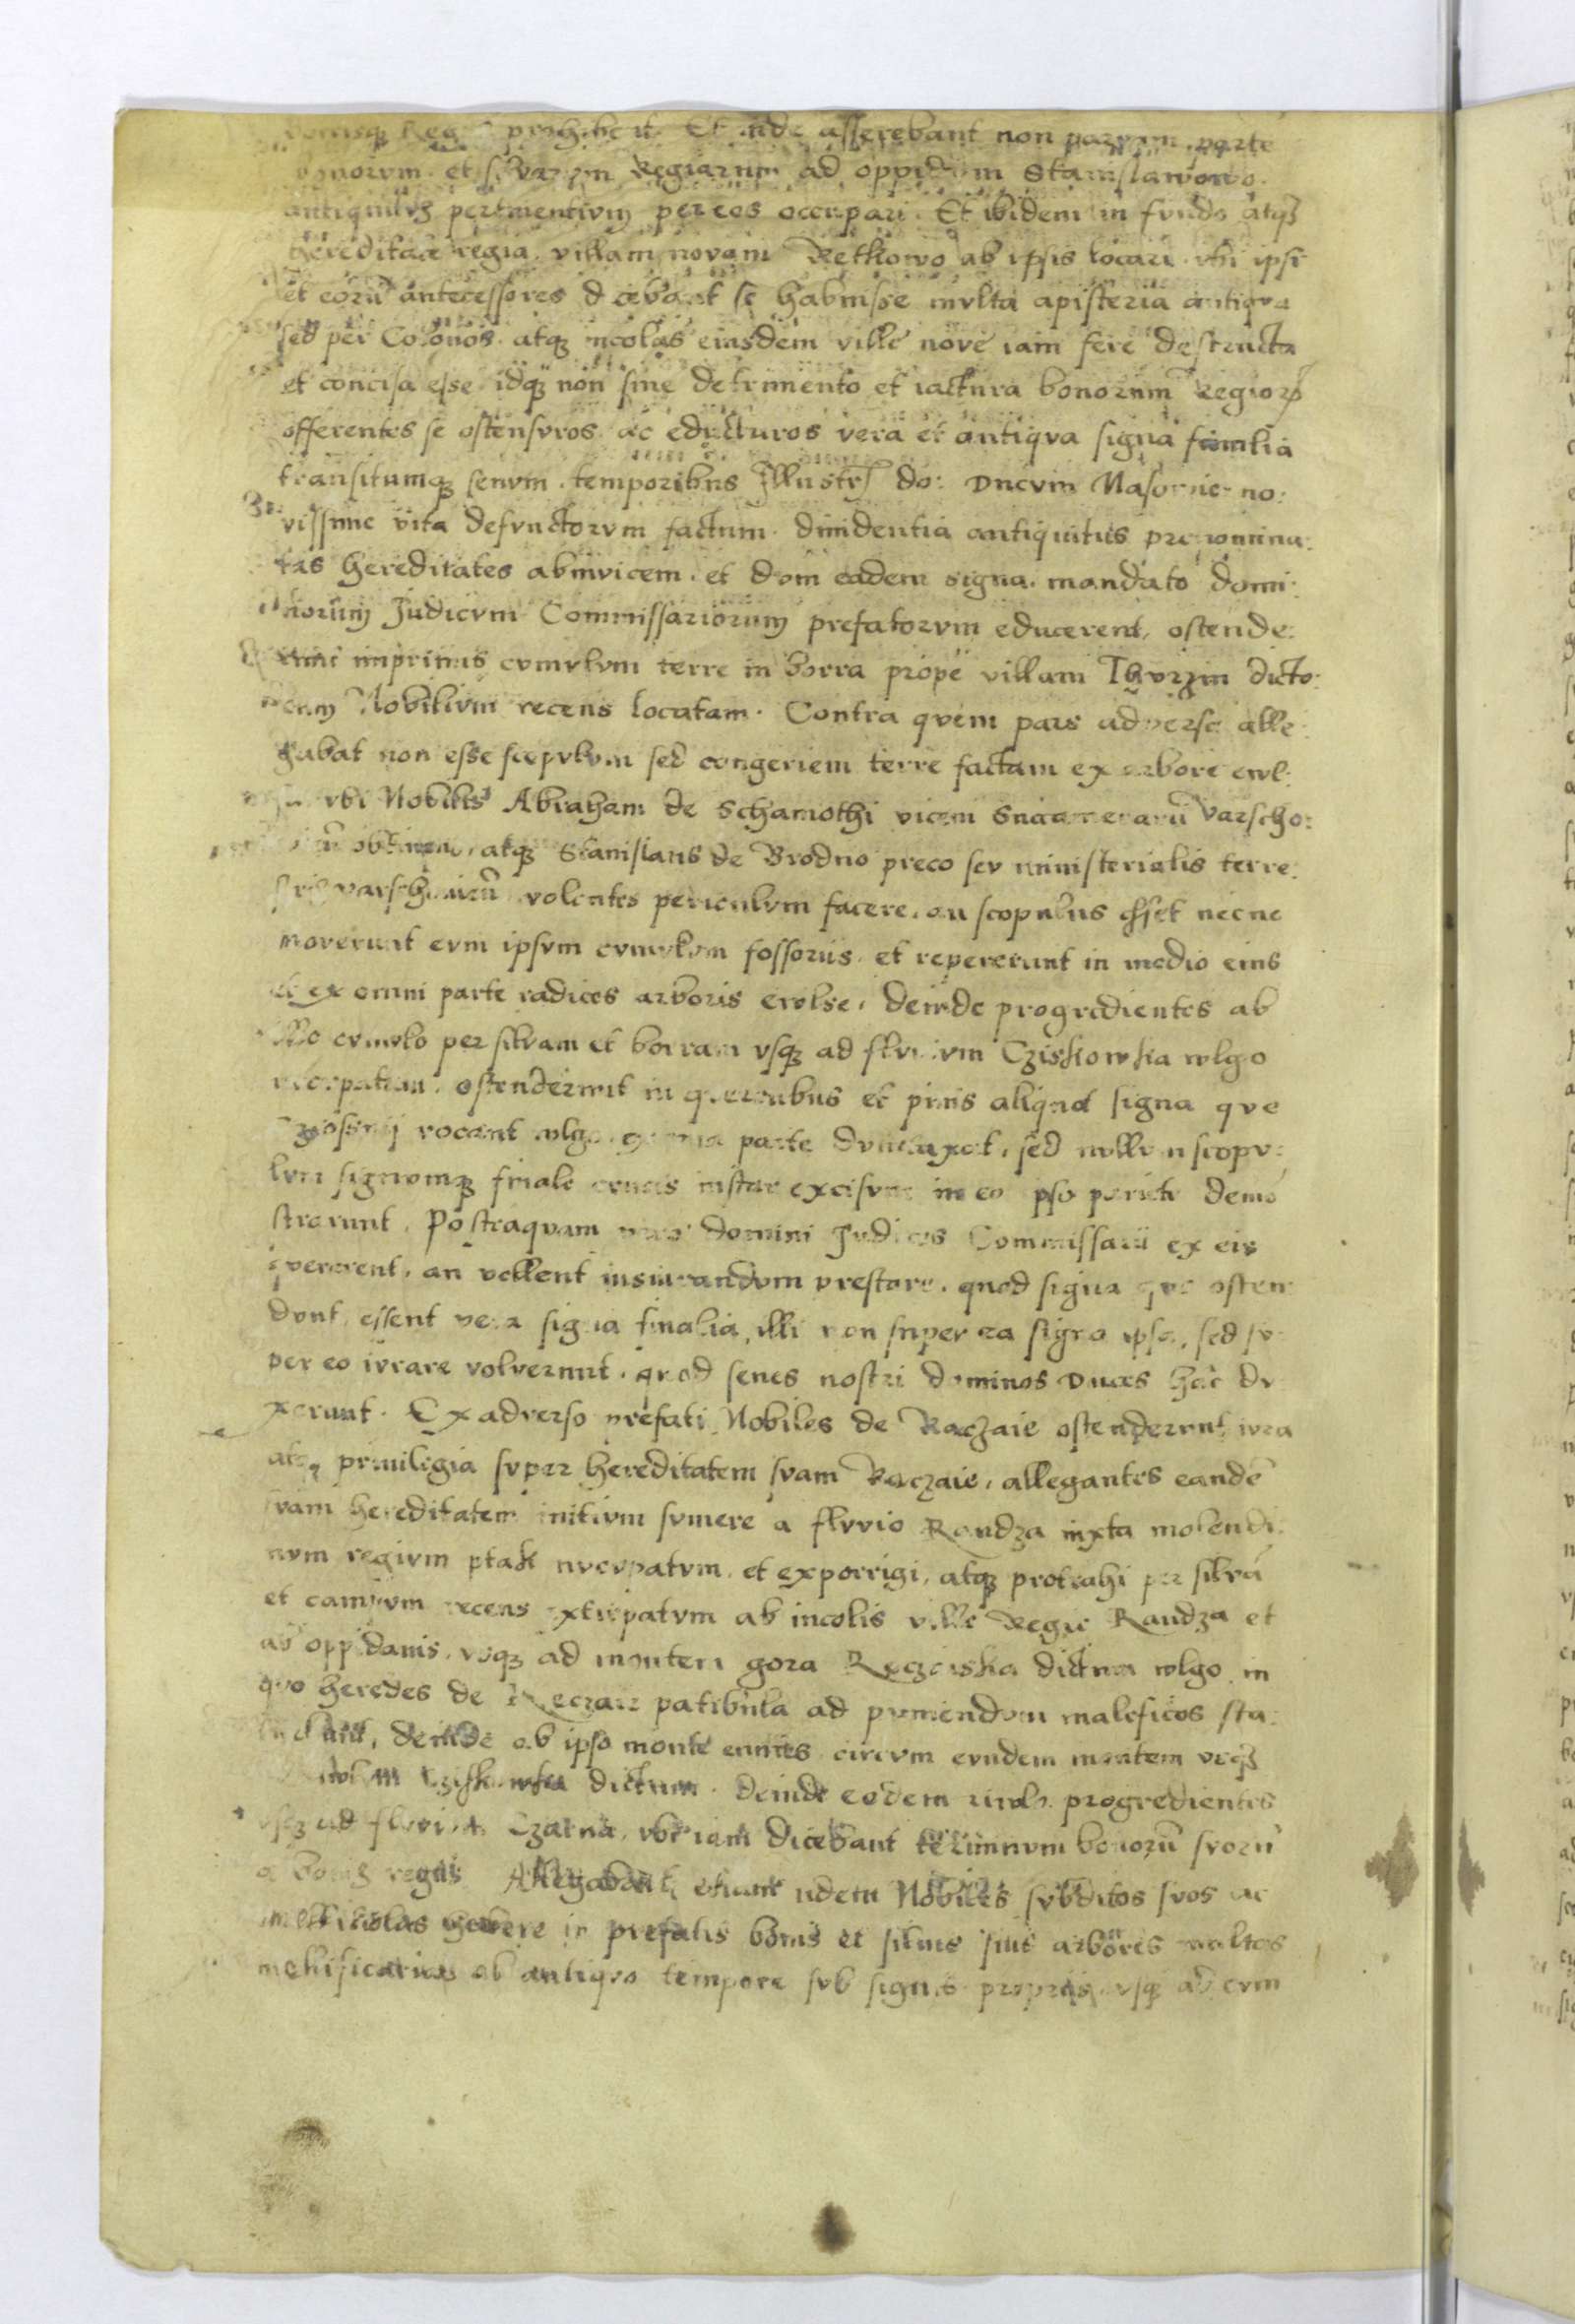 prohibent. Et inde asserebant non parvam parte
bonorvm et silvarvm Regiarum ad oppidvm Stanislawowo
antiquitus pertinentivm per eos occupari. Et ibidem in fvndo atqꝫ
hereditate regia villam novam Retkowo ab ipsis locari vbi ipsi
et eorū antecessores dicebant se habuisse mvlta apisteria antiqva
sed per Colonos atqꝫ incolas eiusdem ville nove iam fere destructa
et concisa esse idqꝫ non sine detrimento et iactura bonorum Regiorꝝ
offerentes se ostensvros ac edvcturos vera et antiqva signa finalia
transitumqꝫ senvm temporibus Illustrꝭ do: Dncvm Masovie no:
vissime vita defvnctorvm factum dividentia antiquitus prenomina:
tas hereditates abinvicem et dvm eadem signa mandato domi:
norum Judicvm Commissariorum prefatorvm educerent, ostende:
runt imprimis cvmvlvm terre in borra prope villam Thvrzin dicto:
rum Nobilivm recens locatam. Contra qvem pars adversa alle:
gabat non esse scopvlvm sed congeriem terre factam ex arbore evvl:
vbi Nobilis Abraham de Schamothi vicem Succamerarii Varscho:
obtinens, atqꝫ Stanislaus de Brodno preco sev ministerialis terre:
stris varschoviēn volentes pericvlvm facere, an scopulus esset necne
moverunt evm ipsvm cvmvlvm fossoriis et repererunt in medio eius
et ex omni parte radices arboris evvlse, deinde progredientes ab
illo cvmvlo per silvam et borram vsqꝫ ad flvvivm Cziskowka wlgo
nvcupatum, ostenderunt in quercubus et pinis aliqvot signa qve
vocant wlgo ex una parte dvntaxat, sed nvllvm scopv:
lvm signvmqꝫ finale crucis instar excisvm in eo ipso pariete demō
strarunt. Posteaqvam vero domini Judices Commissarii ex eis
qvererent, an vellent iusiurandvm prestare, quod signa qve osten
dvnt, essent vera signa finalia, illi non super ea signa ipsa, sed sv
per eo ivrare volverunt, quod senes nostri dominos Duces hac dv
xerunt. Ex adverso prefati Nobiles de Raczaie ostenderunt ivra
atqꝫ privilegia svper hereditatem svam Raczaie, allegantes eandē
svam hereditatem initivm svmere a flvvio Randza iuxta molendi:
nvm regivm ptak nvcvpatvm, et exporrigi, atqꝫ protrahi per silvā
et campvm recens extirpatvm ab incolis ville Regie Randza et
ab oppidanis, vsqꝫ ad montem gora Raczaiska dictum wlgo, in
qvo heredes de Raczaie patibula ad puniendvm maleficos sta:
tuebant, deinde ab ipso monte euntes circvm evndem montem vsqꝫ
Cziskowka dictum. deinde eodem rivulo progredientes
vsqꝫ ad flvvivm Czarna, vbi iam dicebant terminvm bonorū svorū
a bonis regiis. Allegabant etiam iidem Nobiles svbditos svos ac
mellicolas habere in prefatis bonis et silvis suis arbores multas
mellificarias ab antiqvo tempore svb signis propriis vsqꝫ ad evm